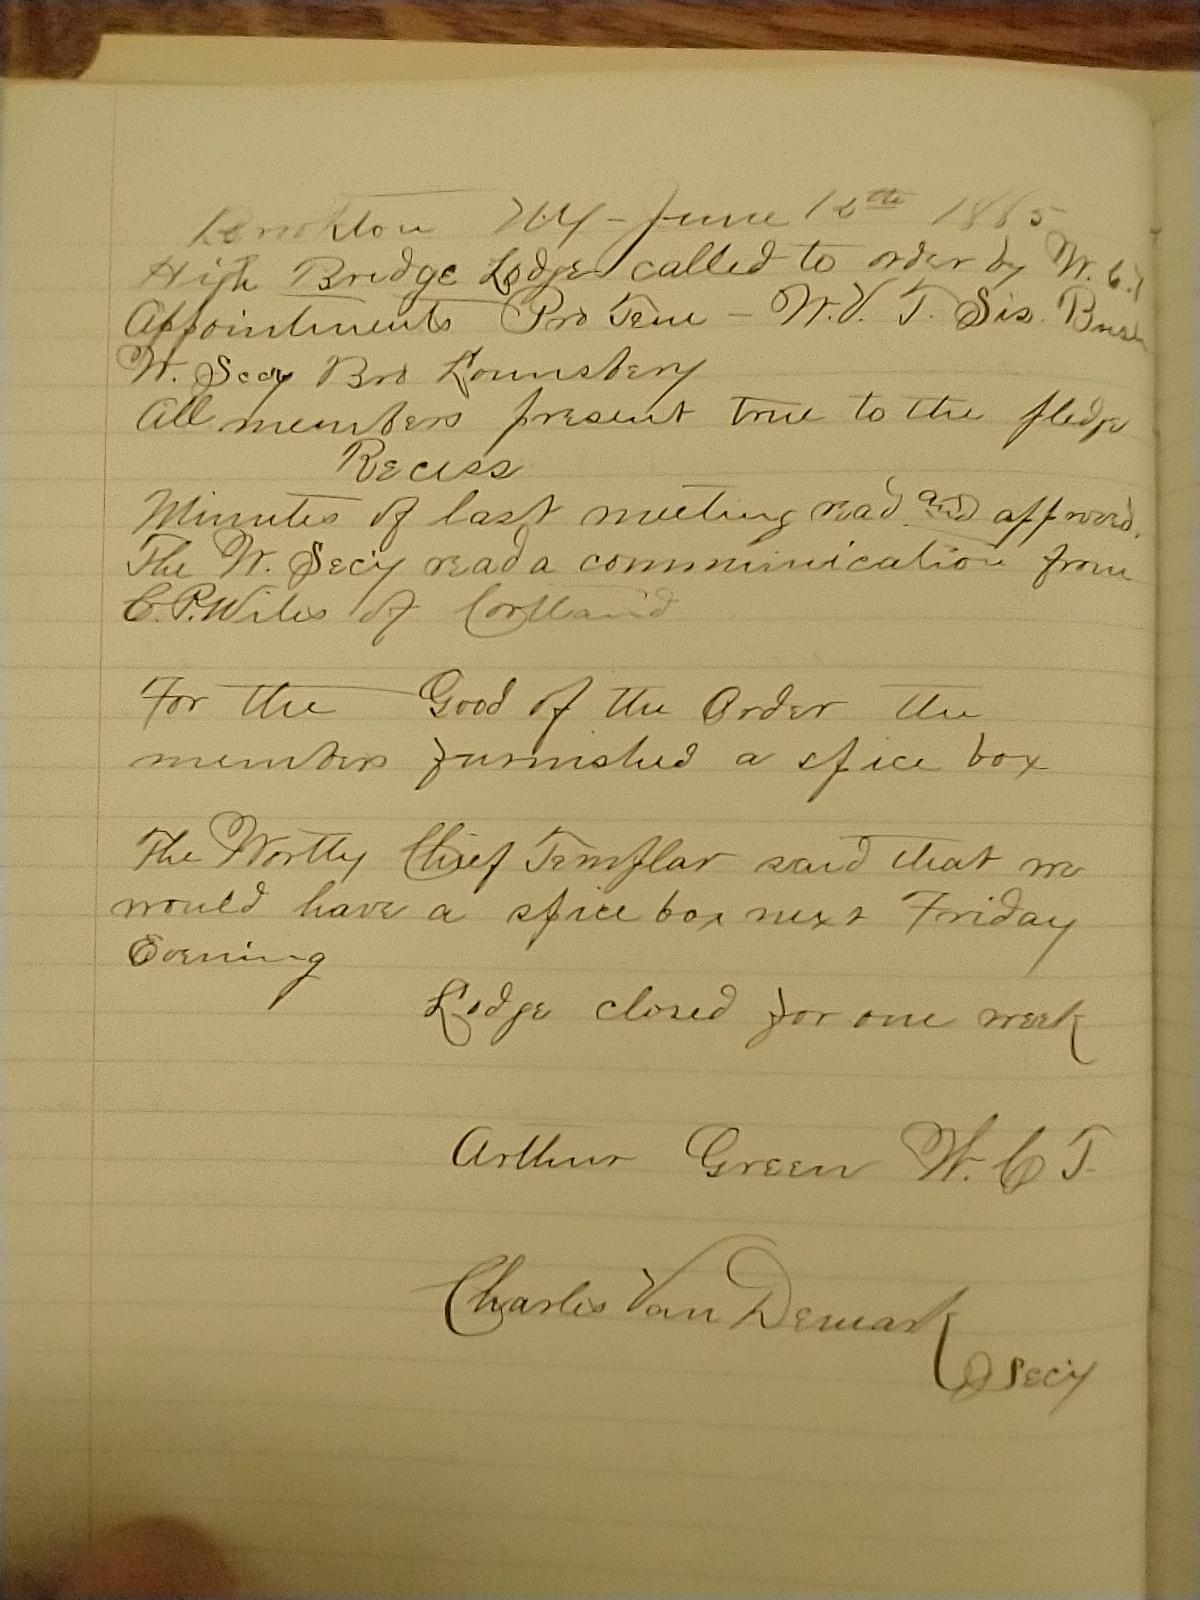 Brookton NY - June 12th 1885
High Bridge Lodge called to order by W. C. T
Appointments Pro Tem - W. V. T. Sis. Bush
W. Secy Bro Lounsbery
All members present true to the pledge
Recess
Minutes of last meeting read and approved.
The W. Secy read a communication from
C. P. Wiles of Cortland
For the Good of the Order the
members furnished a spice box
The Worthy Chief Templar said that we
would have a spice box next Friday
Evening
Lodge closed for one week
Arthur Green W. C T.
Charles Van Demark
Secy